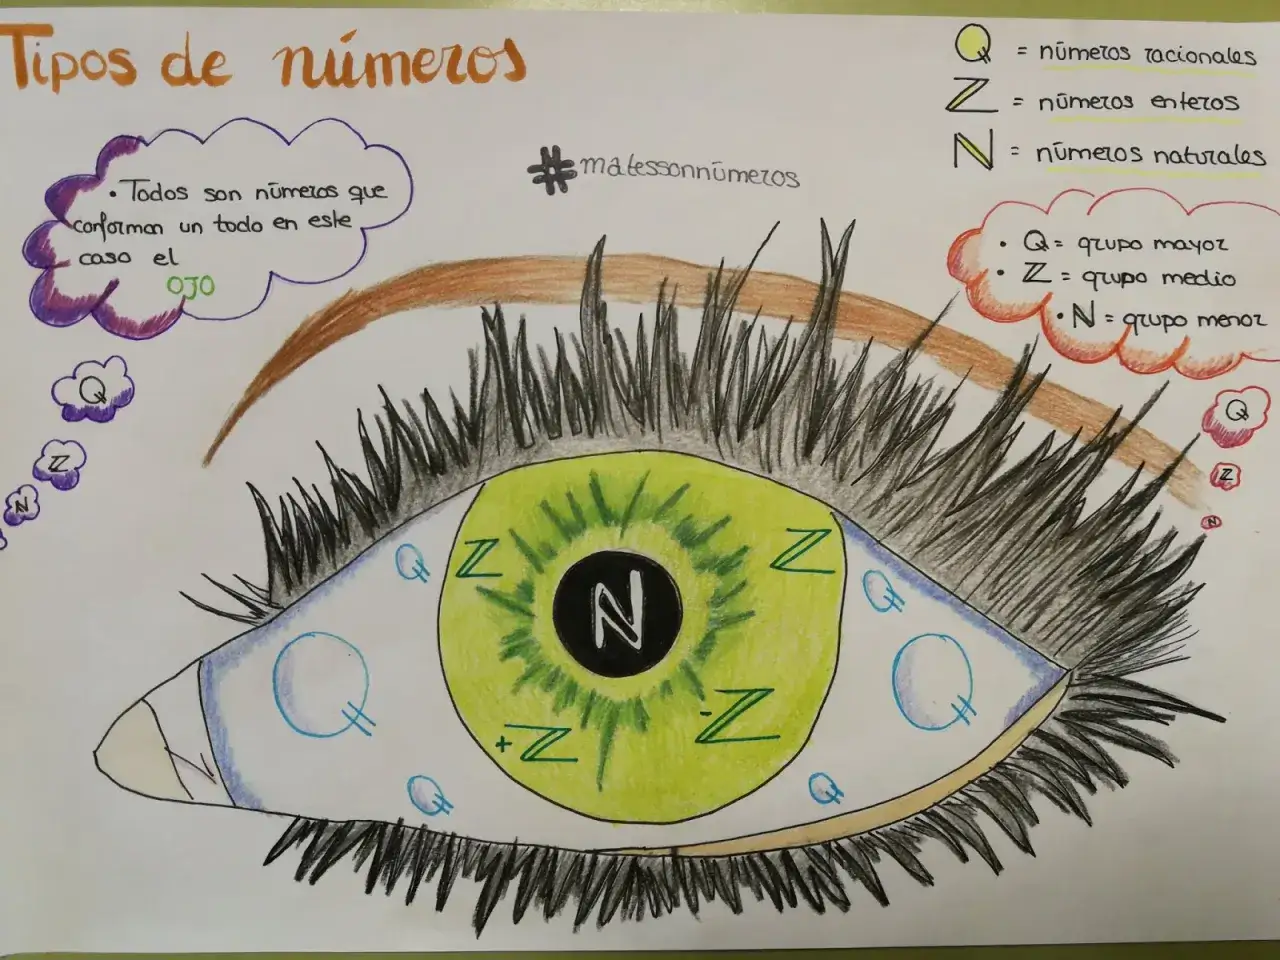 Tipos de números
Q = números racionales
Z = números enteros
N = números naturales
#matessonnúmeros
• Todos son números que
conforman un todo en este
caso el
OJO
• Q = grupo mayor
• Z = grupo medio
• N = grupo menor
Q
Z
N
Q
Z
N
Q
Z
Z
Q
N
Q
Q
+Z
-Z
Q
Q